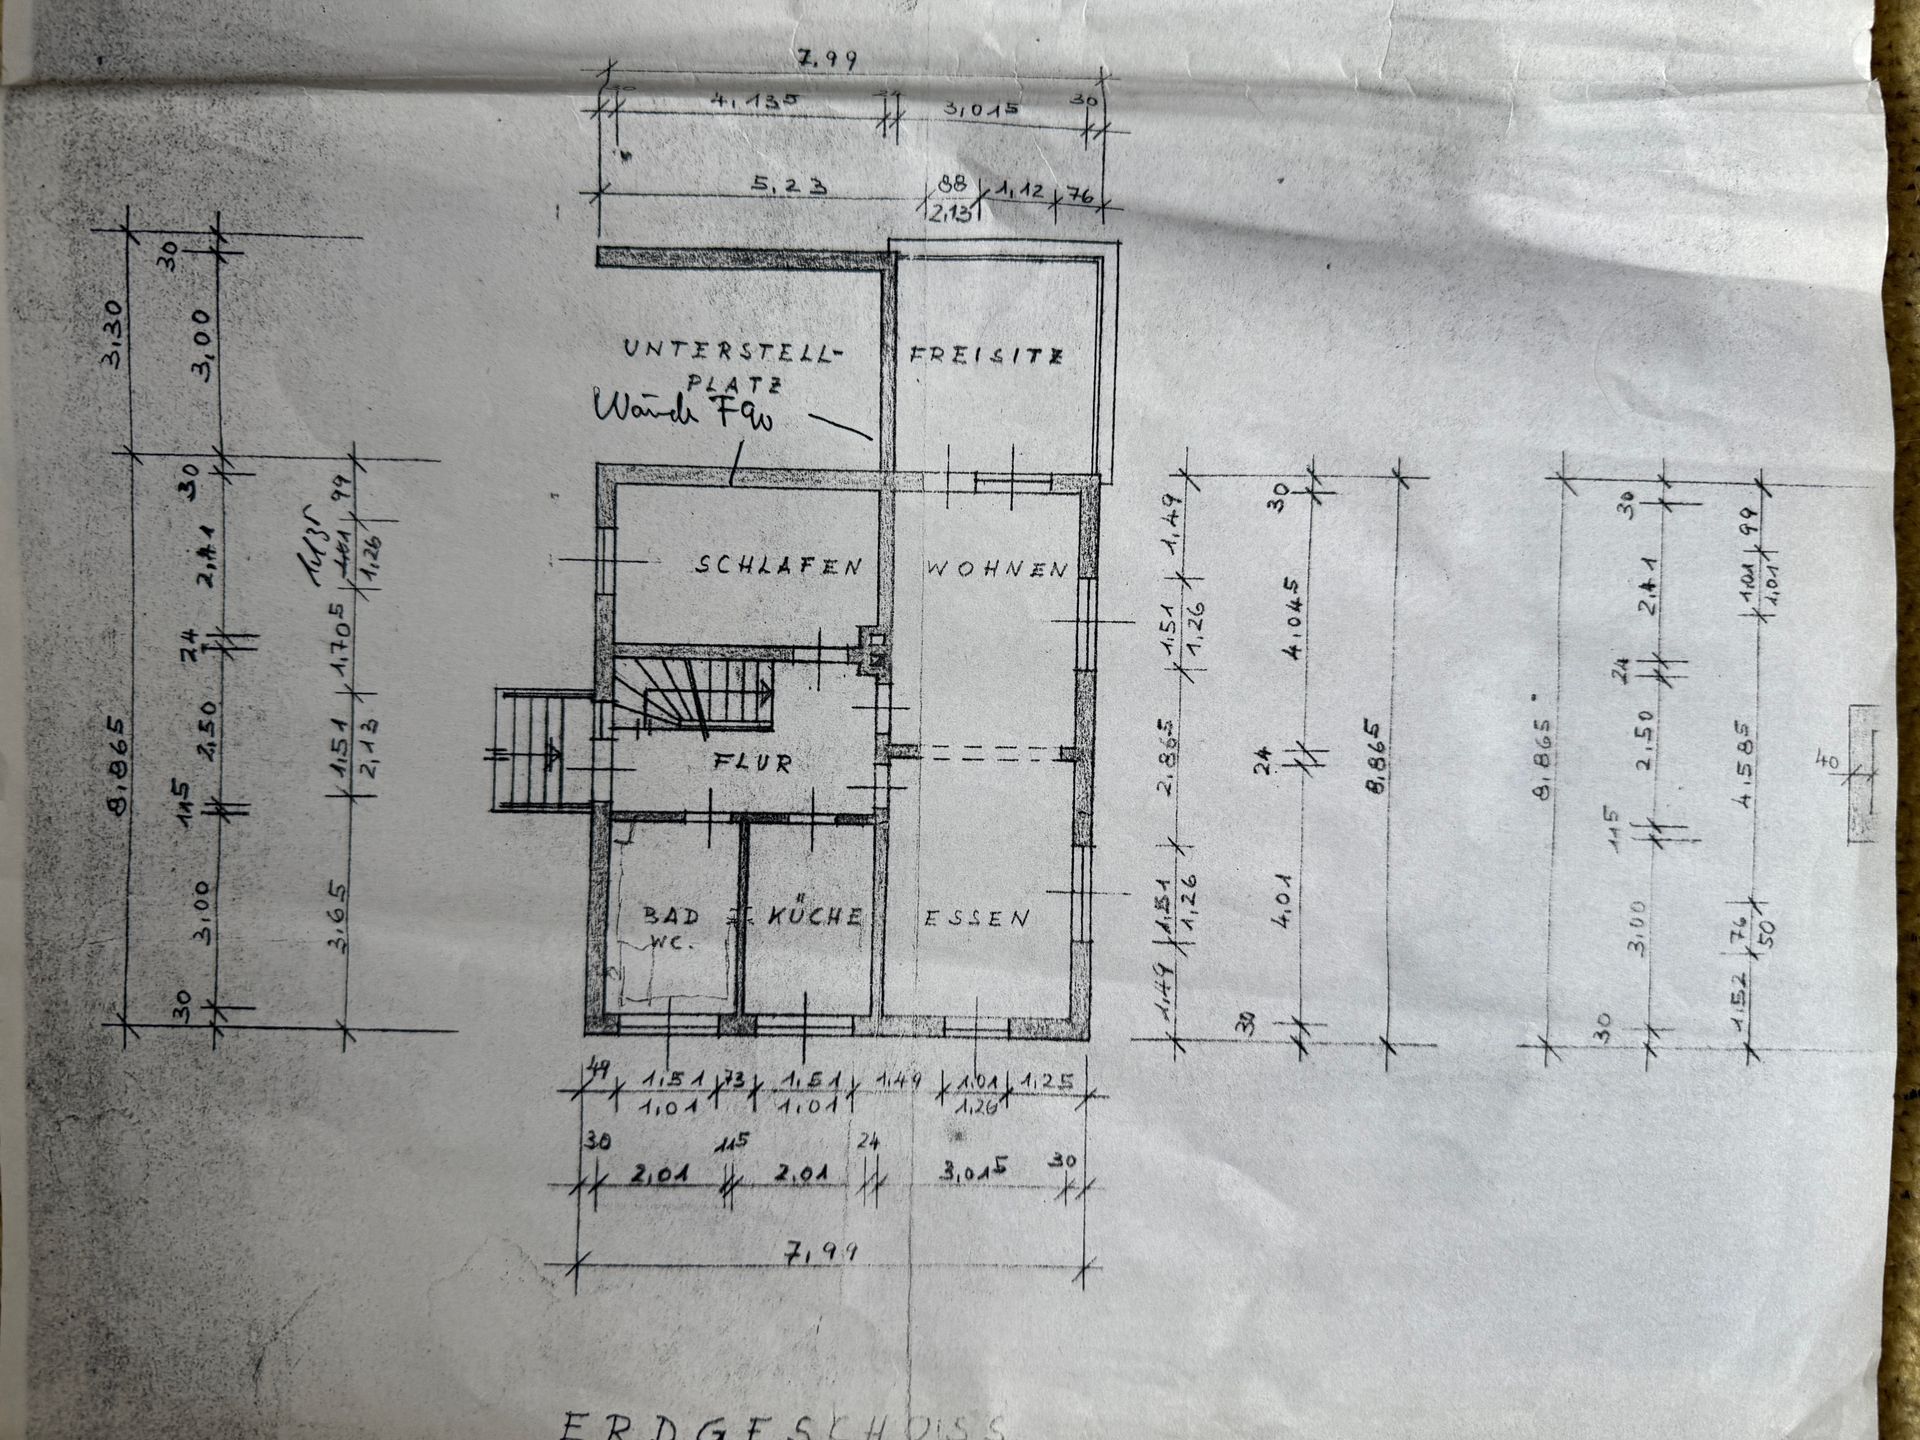 7,99
4,135
3,015
30
5,23
88
1,12
76
2,13
30
3,30
3,00
UNTERSTELL-
PLATZ
FREISITZ
Wände F90
30
99
1,135
1,01
1,26
2,11
24
1,705
8,865
2,50
1,51
2,13
115
3,00
3,65
30
SCHLAFEN
WOHNEN
FLUR
BAD
WC.
KÜCHE
ESSEN
1,49
30
1,51
1,26
4,045
2,865
24
8,865
1,51
1,26
4,01
1,49
30
30
99
2,11
1,01
1,01
24
8,865
2,50
4,585
115
3,00
76
50
1,52
30
40
49
1,51
73
1,51
1,49
1,01
1,25
1,01
1,01
1,26
30
115
24
2,01
2,01
3,015
30
7,99
ERDGESCHOSS